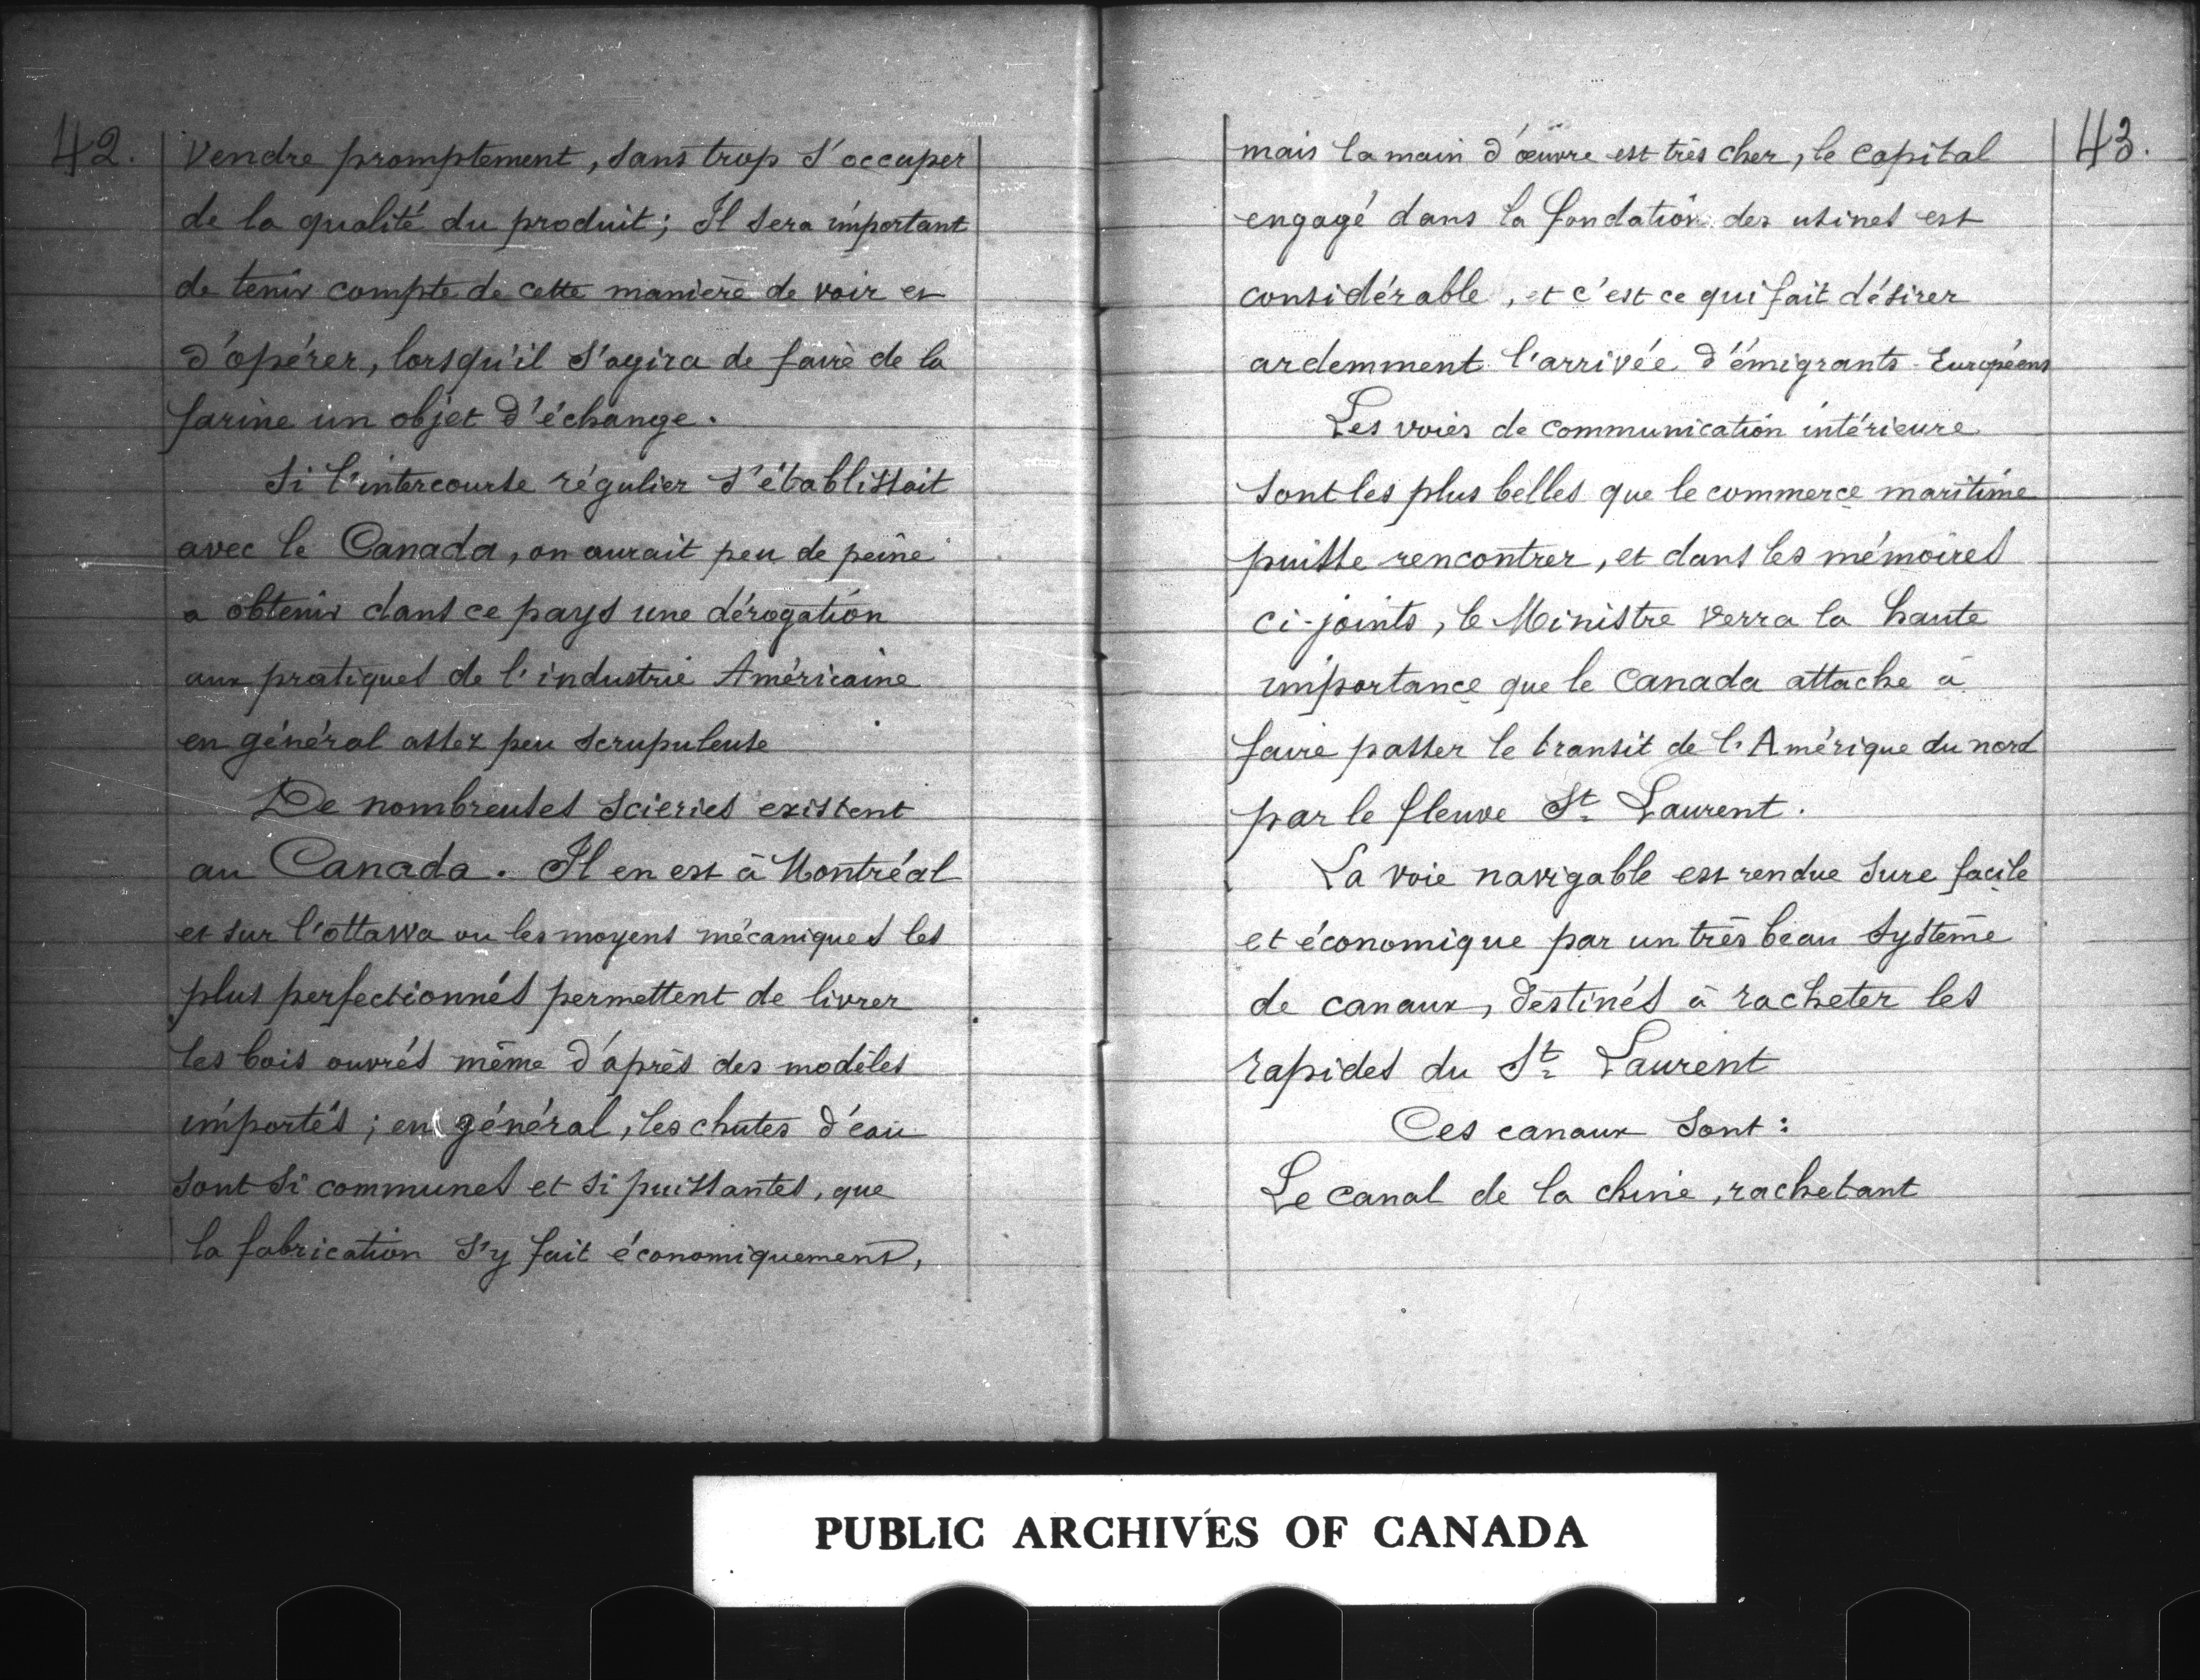 42.
Vendre promptement, sans trop s'occuper
de la qualité du produit; Il sera important
de tenir compte de cette manière de voir et
d'opérer, lorsqu'il s'agira de faire de la
farine un objet d'échange.
Si l'intercourse régulier s'établissait
avec le Canada, on aurait peu de peine
a obtenir dans ce pays une dérogation
aux pratiques de l'industrie Américaine
en général assez peu scrupuleuse
De nombreuses scieries existent
au Canada. Il en est à Montréal
et sur l'ottawa ou les moyens mécaniques les
plus perfectionnés permettent de livrer
les bois ouvrés même d'après des modèles
importés; en général, les chutes d'eau
sont si communes et si puissantes, que
la fabrication s'y fait économiquement,
43.
mais la main d'œuvre est très cher, le capital
engagé dans la fondation des usines est
considérable, et c'est ce qui fait désirer
ardemment l'arrivée d'émigrants Européens
Les voies de communication intérieure
sont les plus belles que le commerce maritime
puisse rencontrer, et dans les mémoires
ci-joints, le Ministre verra la haute
importance que le Canada attache à
faire passer le transit de l'Amérique du nord
par le fleuve St Laurent.
La voie navigable est rendue sure facile
et économique par un très beau système
de canaux, destinés à racheter les
rapides du St Laurent
Ces canaux sont:
Le canal de la chine, rachetant
PUBLIC ARCHIVES OF CANADA